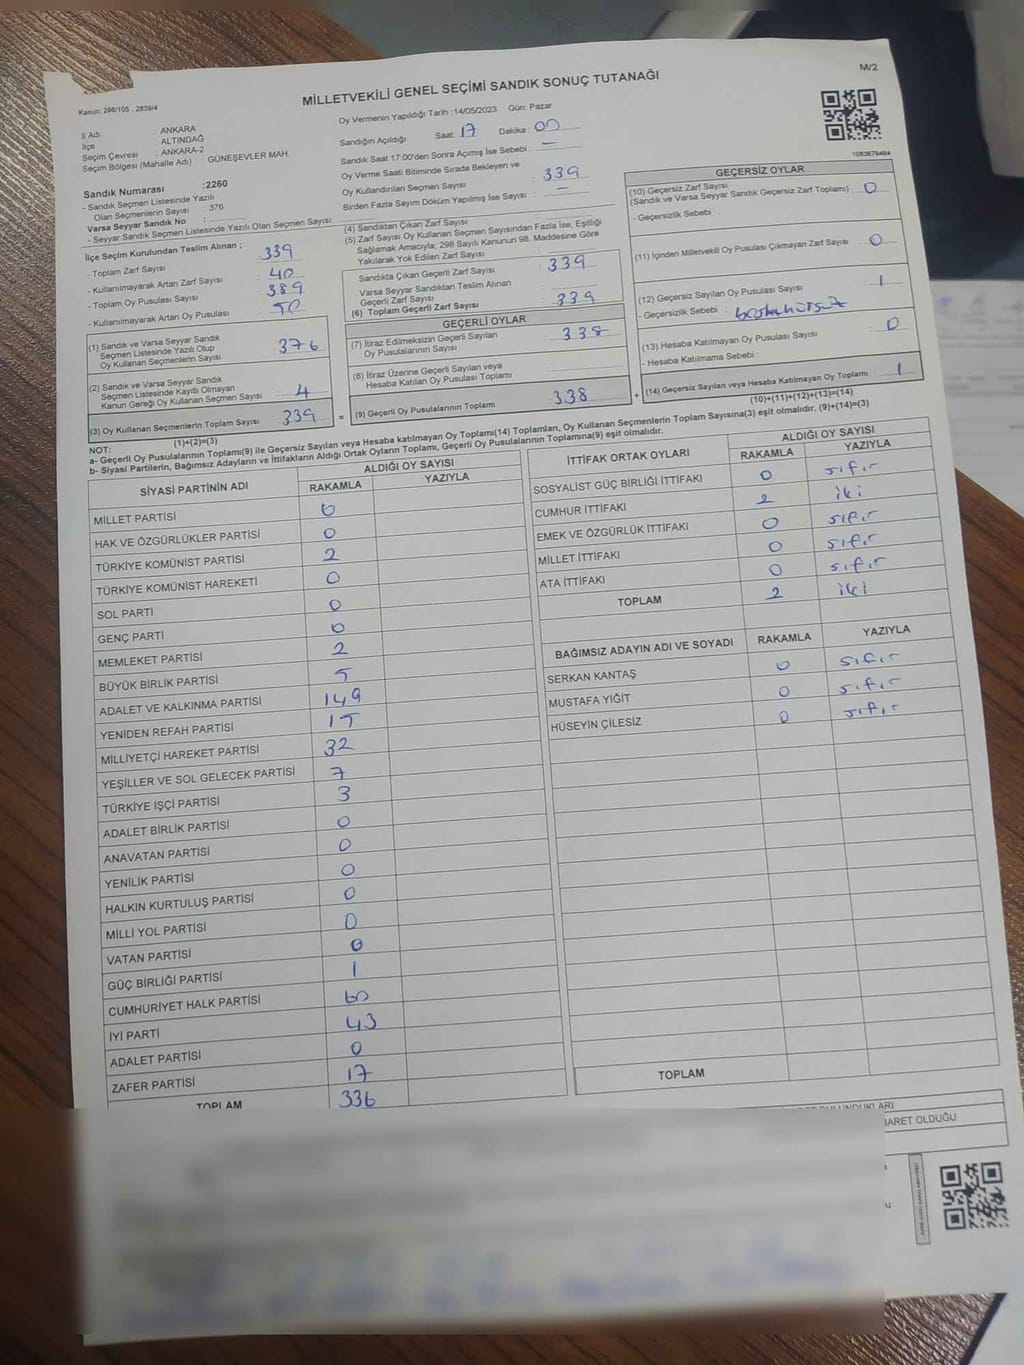 MİLLETVEKİLİ GENEL SEÇİMİ SANDIK SONUÇ TUTANAĞI
M/2
Kanun: 298/105 , 2839/4
Oy Vermenin Yapıldığı Tarih :14/05/2023 Gün: Pazar
İl Adı : ANKARA
İlçe : ALTINDAĞ
Seçim Çevresi : ANKARA-2
Seçim Bölgesi (Mahalle Adı) : GÜNEŞEVLER MAH.
Sandık Numarası :2260
- Sandık Seçmen Listesinde Yazılı
Olan Seçmenlerin Sayısı : 376
Varsa Seyyar Sandık No :
- Seyyar Sandık Seçmen Listesinde Yazılı Olan Seçmen Sayısı:
Sandığın Açıldığı Saat: 17 Dakika: 00
Sandık Saat 17:00'den Sonra Açımış İse Sebebi : —
Oy Verme Saati Bitiminde Sırada Bekleyen ve
Oy Kullandırılan Seçmen Sayısı : 339
Birden Fazla Sayım Döküm Yapılmış İse Sayısı : —
1083679484
İlçe Seçim Kurulundan Teslim Alınan ;
- Toplam Zarf Sayısı : 339
- Kullanılmayarak Artan Zarf Sayısı : 40
- Toplam Oy Pusulası Sayısı : 389
- Kullanılmayarak Artan Oy Pusulası : 50
(1) Sandık ve Varsa Seyyar Sandık
Seçmen Listesinde Yazılı Olup
Oy Kullanan Seçmenlerin Sayısı : 376
(2) Sandık ve Varsa Seyyar Sandık
Seçmen Listesinde Kayıtlı Olmayan
Kanun Gereği Oy Kullanan Seçmen Sayısı : 4
(3) Oy Kullanan Seçmenlerin Toplam Sayısı : 339
(1)+(2)=(3)
(4) Sandıktan Çıkan Zarf Sayısı :
(5) Zarf Sayısı Oy Kullanan Seçmen Sayısından Fazla İse, Eşitliği
Sağlamak Amacıyla; 298 Sayılı Kanunun 98. Maddesine Göre
Yakılarak Yok Edilen Zarf Sayısı :
Sandıkta Çıkan Geçerli Zarf Sayısı : 339
Varsa Seyyar Sandıktan Teslim Alınan
Geçerli Zarf Sayısı :
(6) Toplam Geçerli Zarf Sayısı : 339
GEÇERLİ OYLAR
(7) İtiraz Edilmeksizin Geçerli Sayılan
Oy Pusulalarının Sayısı : 338
(8) İtiraz Üzerine Geçerli Sayılan veya
Hesaba Katılan Oy Pusulası Toplamı :
= (9) Geçerli Oy Pusulalarının Toplamı : 338 +
GEÇERSİZ OYLAR
(10) Geçersiz Zarf Sayısı
(Sandık ve Varsa Seyyar Sandık Geçersiz Zarf Toplamı) : 0
- Geçersizlik Sebebi :
(11) İçinden Milletvekili Oy Pusulası Çıkmayan Zarf Sayısı : 0
(12) Geçersiz Sayılan Oy Pusulası Sayısı : 1
- Geçersizlik Sebebi :
(13) Hesaba Katılmayan Oy Pusulası Sayısı : 0
- Hesaba Katılmama Sebebi :
(14) Geçersiz Sayılan veya Hesaba Katılmayan Oy Toplamı : 1
(10)+(11)+(12)+(13)=(14)
NOT:
a- Geçerli Oy Pusulalarının Toplamı(9) ile Geçersiz Sayılan veya Hesaba katılmayan Oy Toplamı(14) Toplamları, Oy Kullanan Seçmenlerin Toplam Sayısına(3) eşit olmalıdır. (9)+(14)=(3)
b- Siyasi Partilerin, Bağımsız Adayların ve İttifakların Aldığı Ortak Oyların Toplamı, Geçerli Oy Pusulalarının Toplamına(9) eşit olmalıdır.
SİYASİ PARTİNİN ADI ALDIĞI OY SAYISI
RAKAMLA YAZIYLA
MİLLET PARTİSİ 0
HAK VE ÖZGÜRLÜKLER PARTİSİ 0
TÜRKİYE KOMÜNİST PARTİSİ 2
TÜRKİYE KOMÜNİST HAREKETİ 0
SOL PARTİ 0
GENÇ PARTİ 0
MEMLEKET PARTİSİ 2
BÜYÜK BİRLİK PARTİSİ 5
ADALET VE KALKINMA PARTİSİ 149
YENİDEN REFAH PARTİSİ 15
MİLLİYETÇİ HAREKET PARTİSİ 32
YEŞİLLER VE SOL GELECEK PARTİSİ 7
TÜRKİYE İŞÇİ PARTİSİ 3
ADALET BİRLİK PARTİSİ 0
ANAVATAN PARTİSİ 0
YENİLİK PARTİSİ 0
HALKIN KURTULUŞ PARTİSİ 0
MİLLİ YOL PARTİSİ 0
VATAN PARTİSİ 0
GÜÇ BİRLİĞİ PARTİSİ 1
CUMHURİYET HALK PARTİSİ 60
İYİ PARTİ 43
ADALET PARTİSİ 0
ZAFER PARTİSİ 17
TOPLAM 336
İTTİFAK ORTAK OYLARI ALDIĞI OY SAYISI
RAKAMLA YAZIYLA
SOSYALİST GÜÇ BİRLİĞİ İTTİFAKI 0 sıfır
CUMHUR İTTİFAKI 2 iki
EMEK VE ÖZGÜRLÜK İTTİFAKI 0 sıfır
MİLLET İTTİFAKI 0 sıfır
ATA İTTİFAKI 0 sıfır
TOPLAM 2 iki
BAĞIMSIZ ADAYIN ADI VE SOYADI RAKAMLA YAZIYLA
SERKAN KANTAŞ 0 sıfır
MUSTAFA YİĞİT 0 sıfır
HÜSEYİN ÇİLESİZ 0 sıfır
TOPLAM
BULUNDUKLARI
İŞARET OLDUĞU